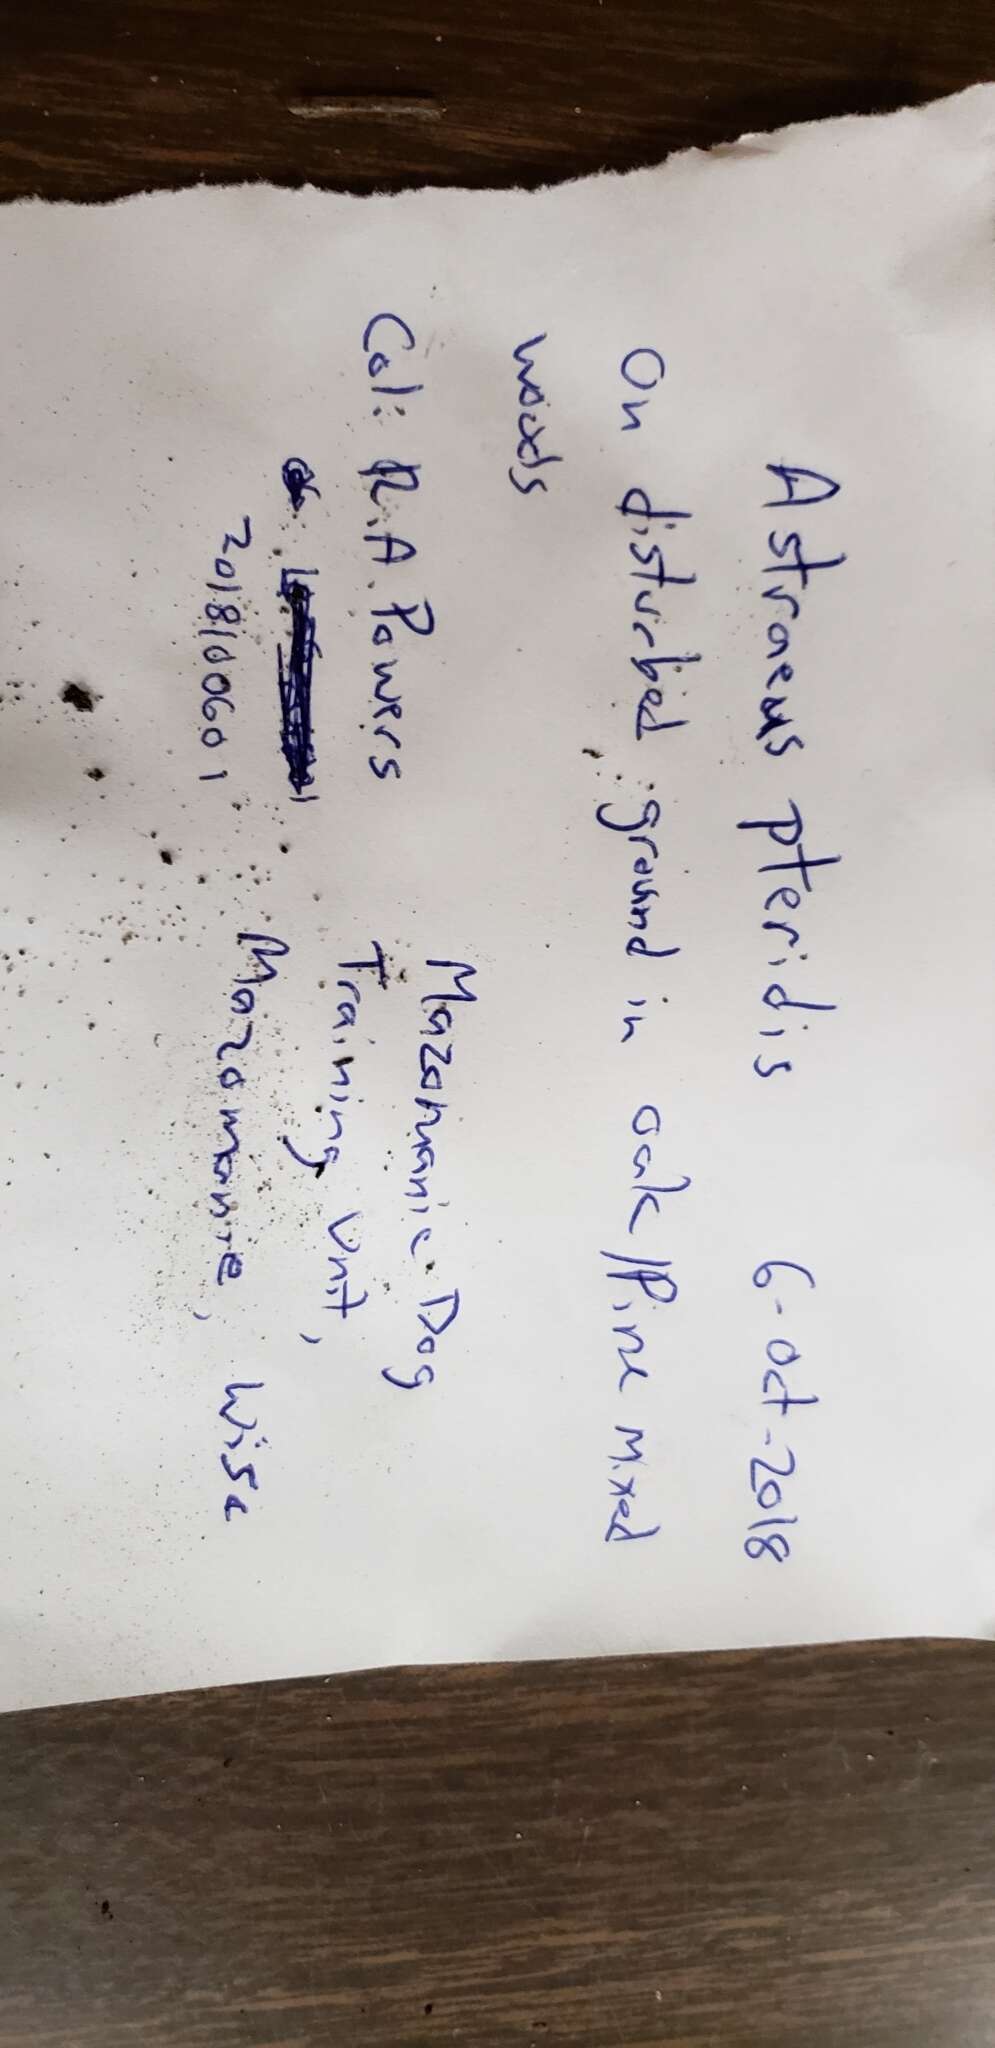 Astraeus pteridis 6-Oct-2018
On disturbed ground in oak/Pine mixed
woods
Col: R.A. Powers
20181006 01
Mazomanie Dog
Training Unit,
Mazomanie, Wisc